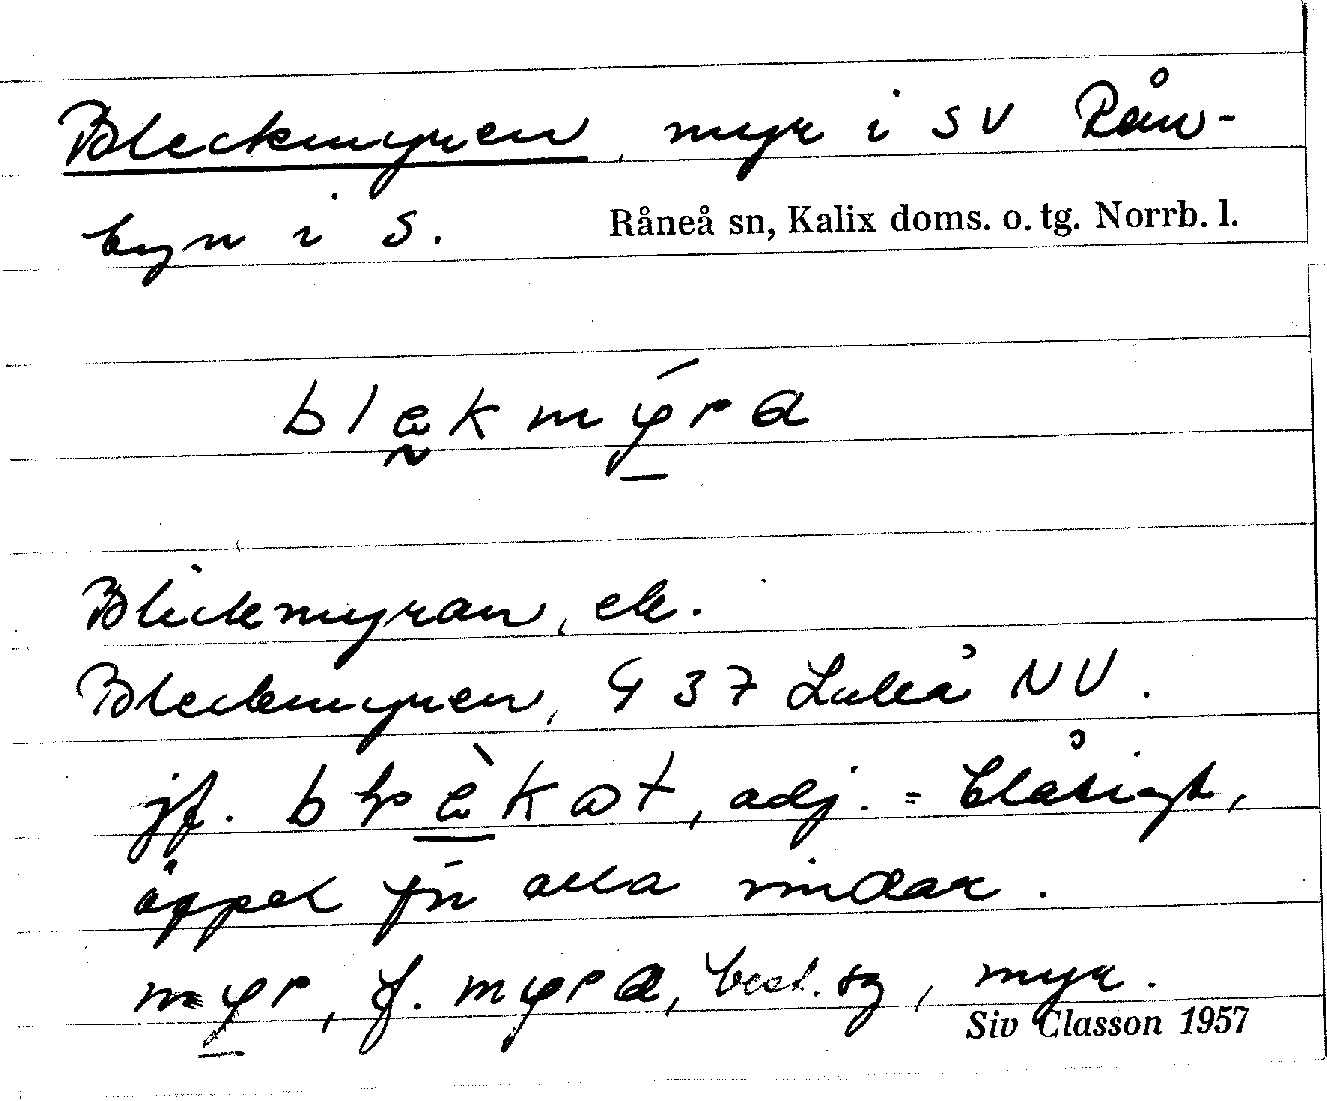 Bleckmyren, myr i SV Rån-
byn i S. Råneå sn, Kalix doms. o. tg. Norrb. l.
blækmýra
Blickmyran, ek.
Bleckmyren, G 37 Luleå NV.
jf. adj. = blåsigt,
öppet för alla vindar.
myr, f. myra, best. sg, myr.
Siv Classon 1957